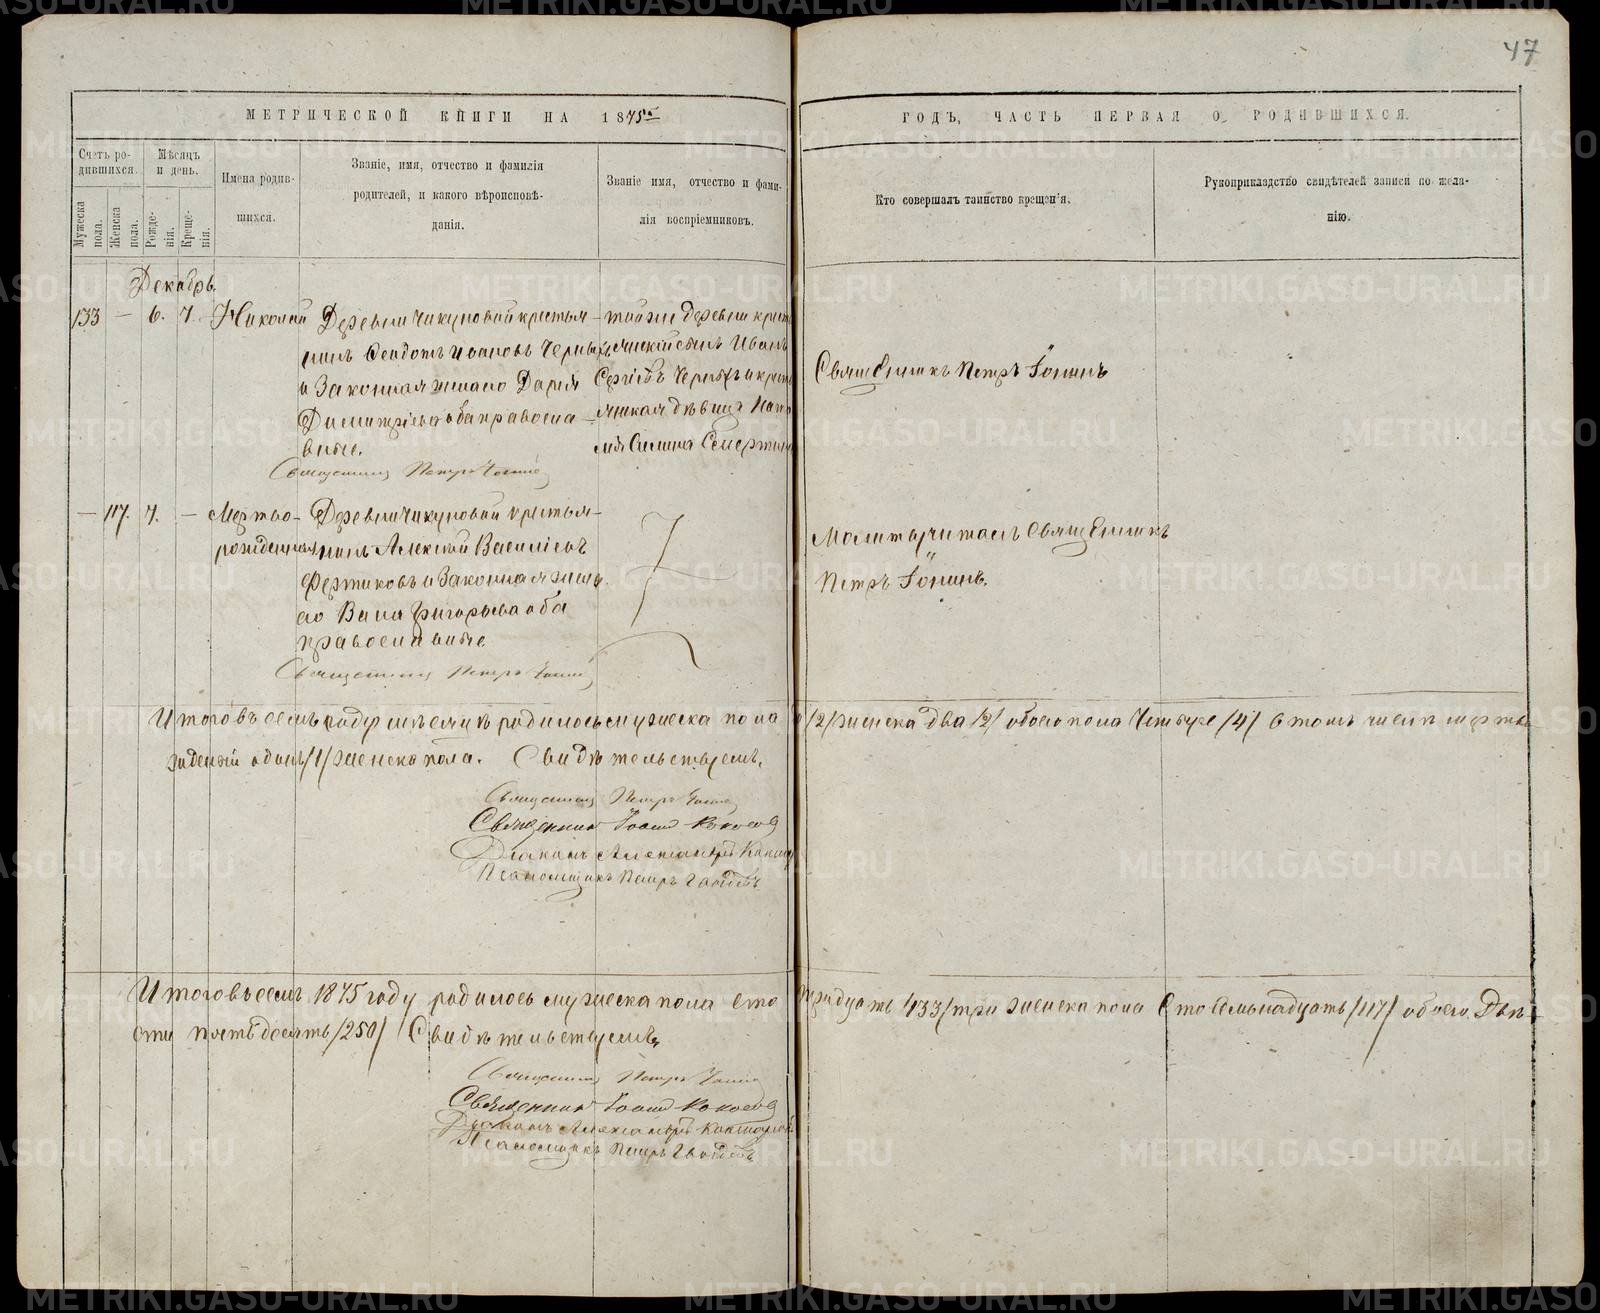 47
МЕТРИЧЕСКОЙ КНИГИ НА 1875й ГОДЪ, ЧАСТЬ ПЕРВАЯ О РОДИВШИХСЯ.
Счетъ родившихся.
Мужеска пола.
Женска пола.
Мѣсяцъ и день.
Рожденія.
Крещенія.
Имена родившихся.
Званіе, имя, отчество и фамилія
родителей, и какого вѣроисповѣ-
данія.
Званіе имя, отчество и фами-
лія воспріемниковъ.
Кто совершалъ таинство крещенія.
Рукоприкладство свидѣтелей записи по жела-
нію.
Декабрь.
133 — 6. 7. Николай
Деревни Чикуновой крестья-
нинъ Феодотъ Ивановъ Черныхъ
и Законная жена его Дарья
Димитріева оба православ-
ные.
Священникъ Петръ Іонинъ
тойже деревни
Иванъ
Сергіевъ Черныхъ и
дѣвица
Силина
Священникъ Петръ Іонинъ
— 117. 7. — Мертво-
рожденная
Деревни Чикуновой крестья-
нинъ Алексѣй Васильевъ
Фертиковъ и Законная жена
его Васса Григорьева оба
православные
Священникъ Петръ Іонинъ
Молитву читалъ Священникъ
Петръ Іонинъ.
Итого въ семъ родилось мужеска пола /2/ женска два /2/ обоего пола Четыре /4/ в томъ числѣ мертво-
одинъ /1/ женска пола. Свидѣтельствуемъ,
Священникъ Петръ Іонинъ
Священникъ Іоаннъ Кокосов
Діаконъ Александръ
Псаломщикъ Петръ Гвоздевъ
Итого въ семъ 1875 году родилось мужеска пола сто тридцать /133/ три женска пола Сто Семьнадцать /117/ обоего Двѣ-
сти пятьдесятъ /250/ Свидѣтельствуемъ,
Священникъ Петръ Іонинъ
Священникъ Іоаннъ Кокосов
Діаконъ Александръ
Псаломщикъ Петръ Гвоздевъ
METRIKI.GASO-URAL.RU